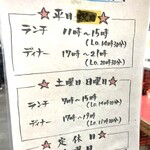 平日
ランチ 11時〜15時
(L.O.14時30分)
ディナー 17時〜21時
(L.O.20時30分)
土曜日 日曜日
ランチ 11時〜15時
(L.O.14時30分)
ディナー 17時〜
定休日